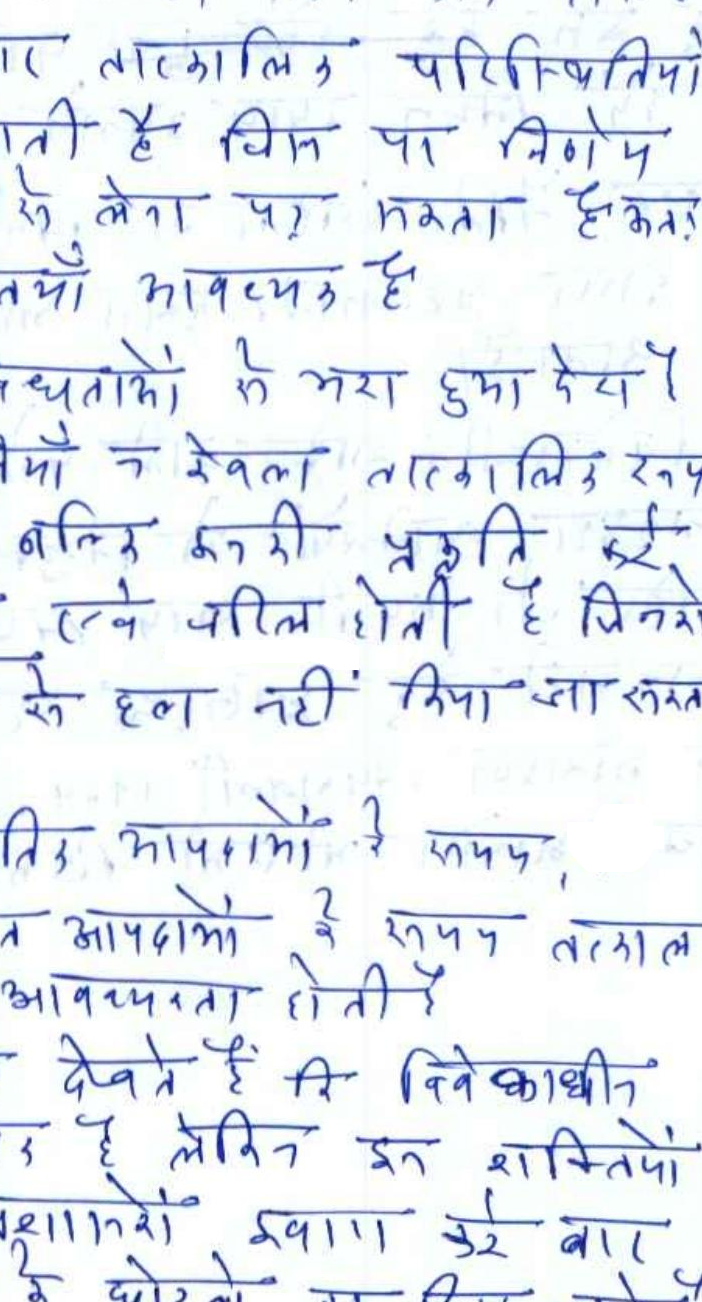 बार तात्कालिक परिस्थितियों
आती है जिन पर निर्णय
से लेना पड़ सकता है अतः
शक्तियाँ आवश्यक है
विविधताओं से भरा हुआ देश है
न केवल तात्कालिक रूप
बल्कि इनकी प्रकृति कई
एवं जटिल होती है जिनको
से हल नहीं किया जा सकता
आपदाओं के समय,
आपदाओं के समय तत्काल
आवश्यकता होती है
देखते हैं कि विवेकाधीन
है लेकिन इन शक्तियों
प्रशासकों द्वारा कई बार
के